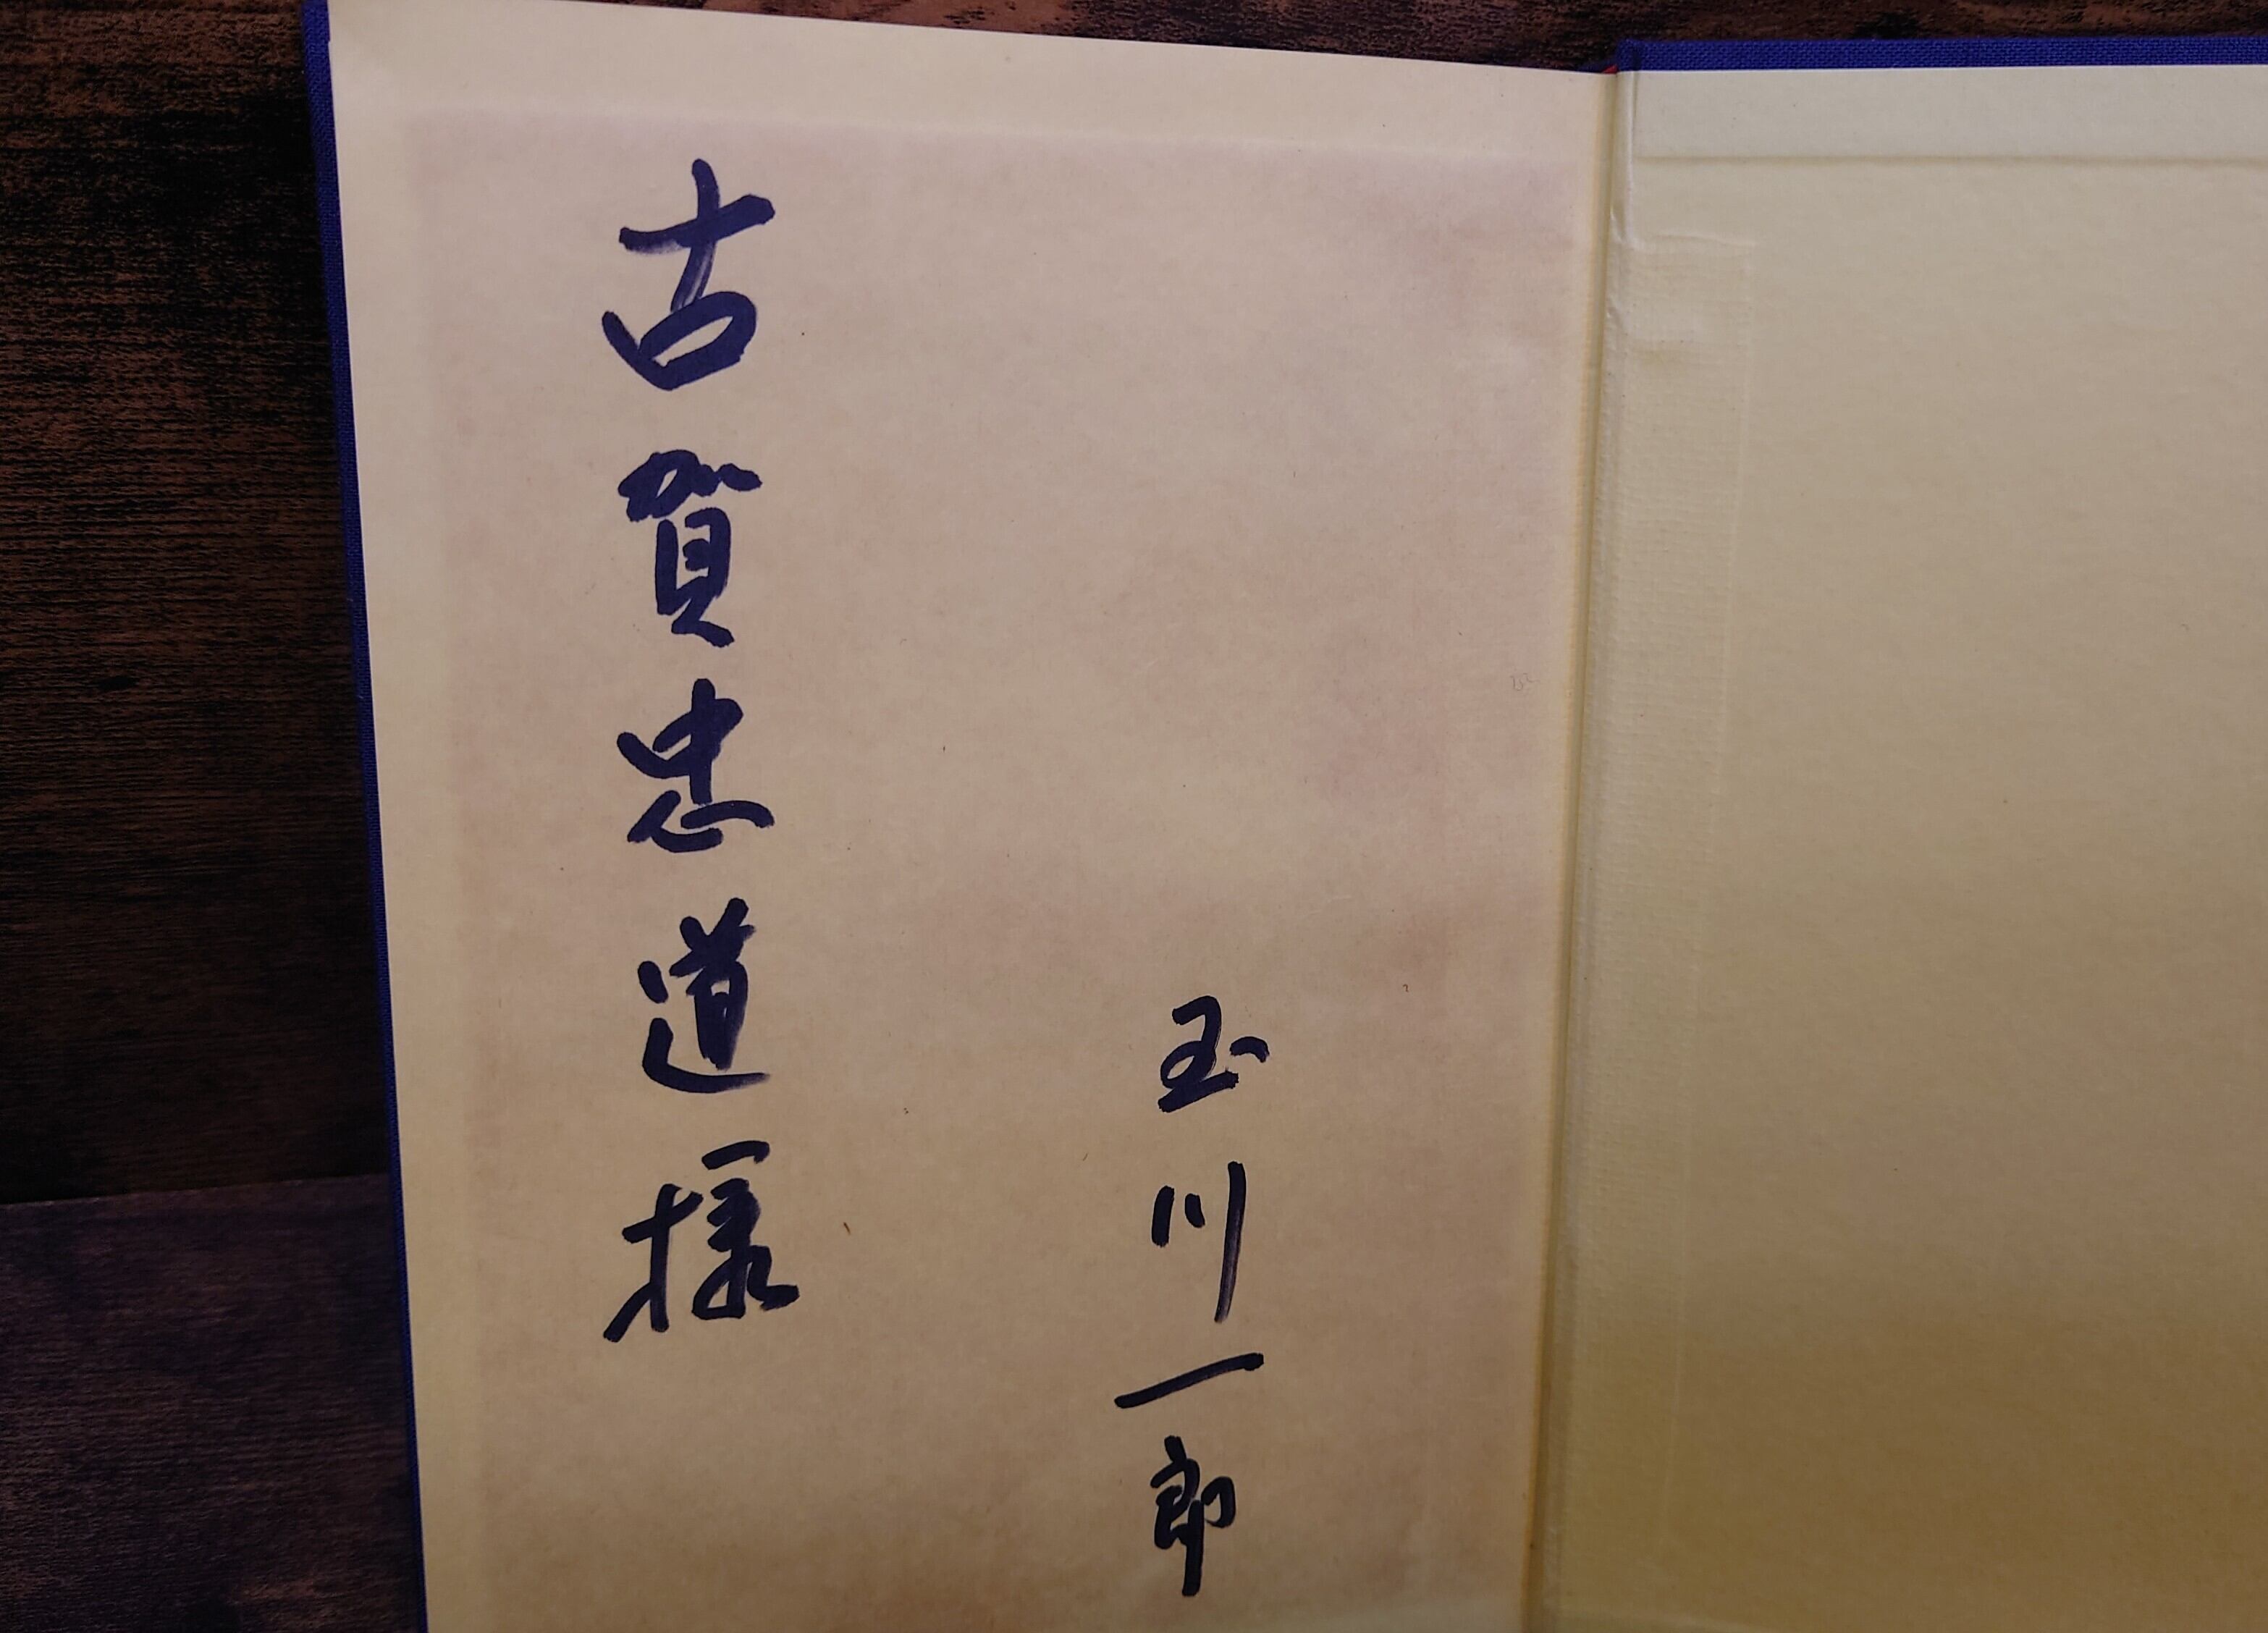 玉川一郎
古賀忠道様